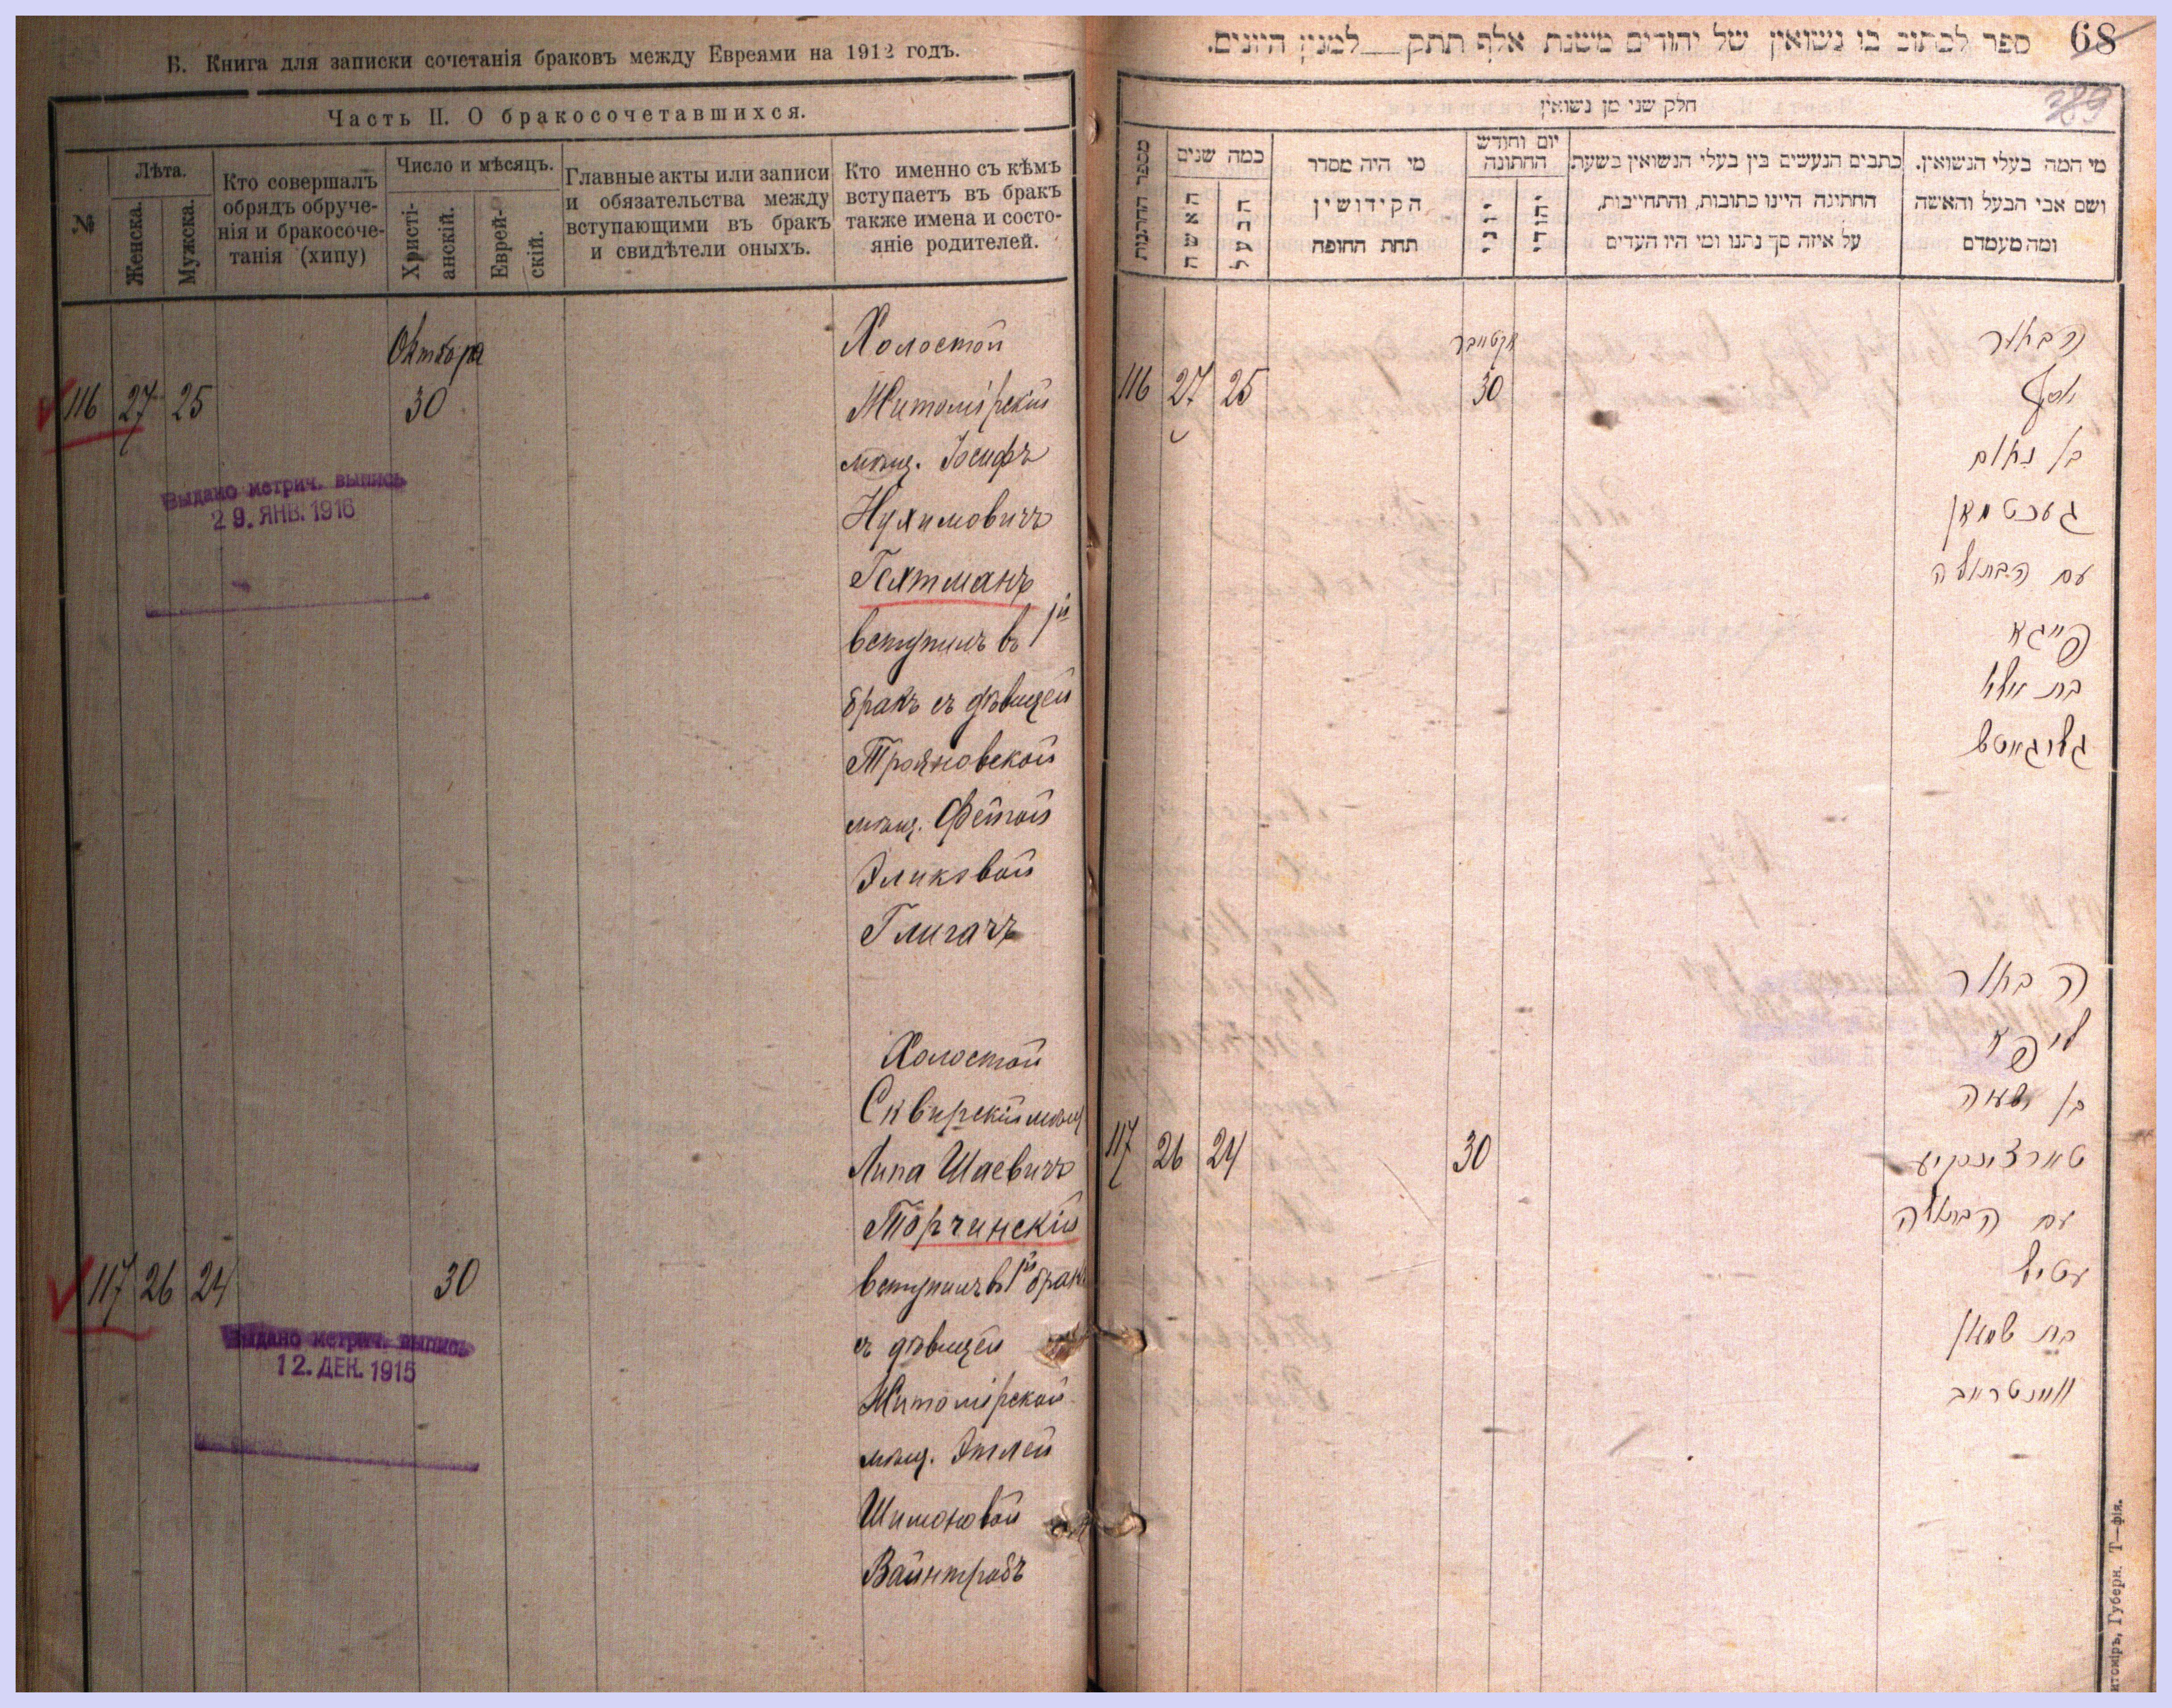 В. Книга для записки сочетанія браковъ между Евреями на 1912 годъ.
Часть II. О бракосочетавшихся.
№
Лѣта.
Женска.
Мужска.
Кто совершалъ
обрядъ обруче-
нія и бракосоче-
танія (хипу)
Число и мѣсяцъ.
Христі-
анскій.
Еврей-
скій.
Главные акты или записи
и обязательства между
вступающими въ бракъ
и свидѣтели оныхъ.
Кто именно съ кѣмъ
вступаетъ въ бракъ
также имена и состо-
яніе родителей.
Октября
116 27 25 30
Холостой
Житомірскій
мѣщ. Іосифъ
Нухимовичъ
Гехтманъ
вступилъ въ 1й
бракъ съ дѣвицей
Трояновской
мѣщ. Фейгой
Эликовой
Глигачъ
Выдано метрич. выпись
29. ЯНВ. 1916
117 26 24 30
Холостой
Сквирскій мѣщ
Липа Шаевичъ
Торчинскій
вступилъ въ 1й бракъ
съ дѣвицей
Житомірской
мѣщ. Этлей
Шимоновой
Вайнтрабъ
Выдано метрич. выпись
12. ДЕК. 1915
ספר לכתוב בו נשואין של יהודים משנת אלף תתק למנין היונים.
68
389
חלק שני מן נשואין
מספר החתנות
כמה שנים
האשה
הבעל
מי היה מסדר
הקידושין
תחת החופה
יום וחודש
החתונה
יוני
יהודי
כתבים הנעשים בין בעלי הנשואין בשעת
החתינה היינו כתובות, והתחייבות,
על איזה סך נתנו ומי היו העדים
מי המה בעלי הנשואין.
ושם אבי הבעל והאשה
ומה מעמדם
אקטאבר
116 27 25 30
הבאור
יוסף
בן נאום
געכטמאן
עם הבתולה
פייגא
בת אילא
גליגאטש
117 26 24 30
הבאור
ליפא
בן ישעיה
טארצינסקיע
עם הבתולה
עטיל
בת שמאון
וויינטרויב
итоміръ, Губерн. Т—фія.